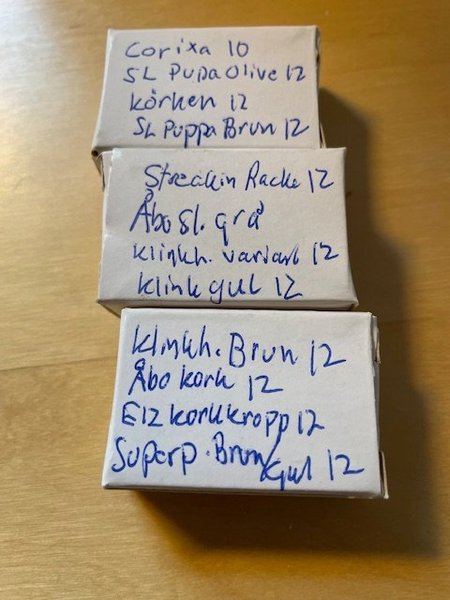 Corixa 10
SL Pupa Olive 12
Körken 12
SL Puppa Brun 12
Streakin Racke 12
Åbo sl. grå
Klinkh. variant 12
Klink gul 12
Klinkh. Brun 12
Åbo kork 12
E12 korkkropp 12
Superp. Brun/gul 12